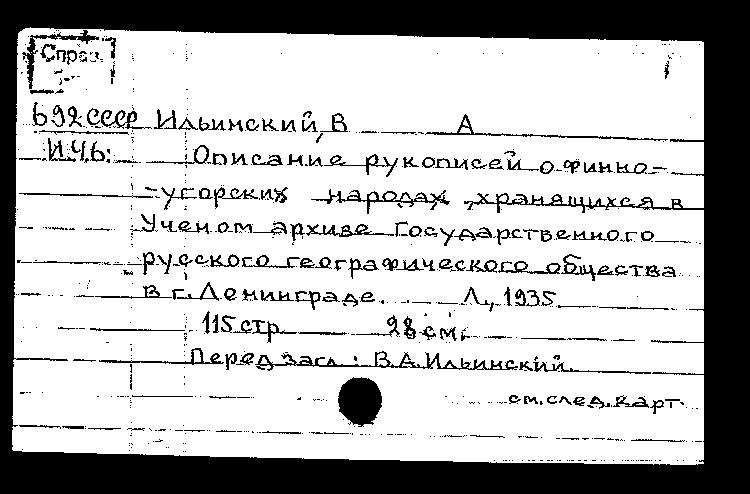 Справ.
692 СССР Ильинский, В А
И.46: Описание рукописей о финно-
-угорских народах, хранящихся в
Ученом архиве Государственного
русского географического общества
в г. Ленинграде. Л., 1935.
115 стр 28 см.
Перед загл.: В.А.Ильинский.
см.след.карт.